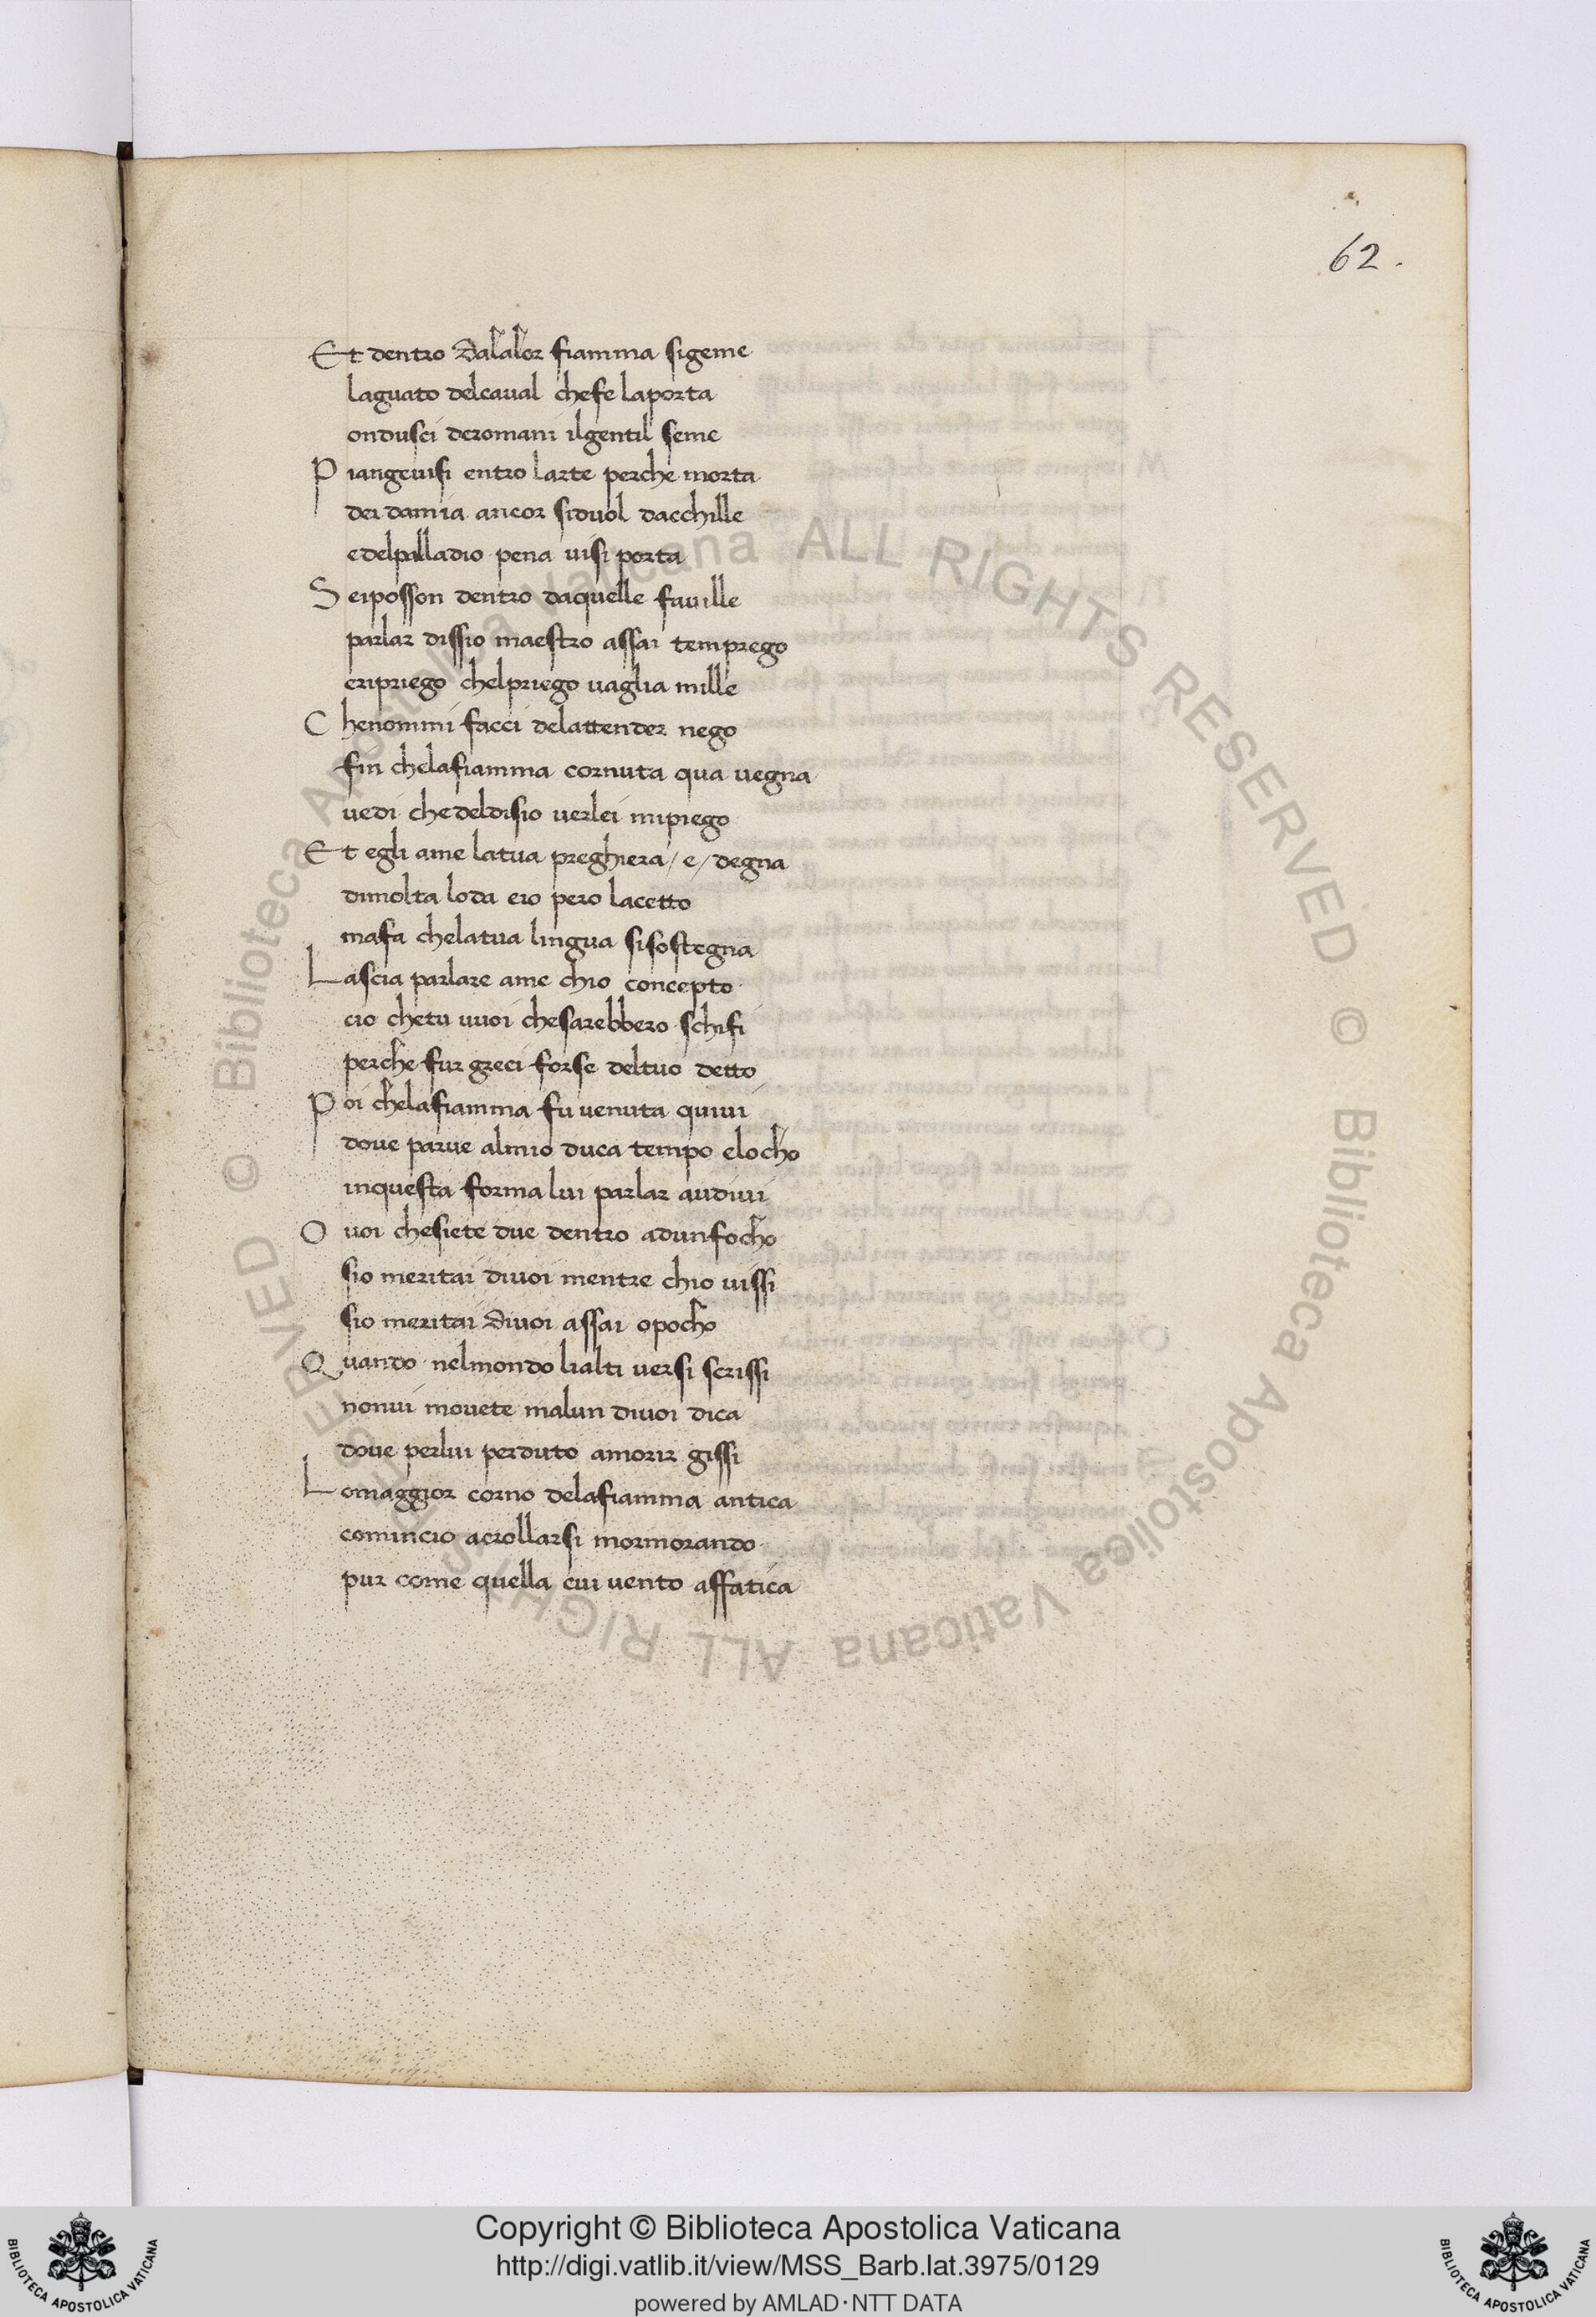 62.
Et dentro dalalor fiamma sigeme
laguato delcaual chefe laporta
ondusci deromani ilgentil seme
P iangeuisi entro larte perche morta
dei damia ancor siduol dacchille
edelpalladio pena uisi porta
S eiposson dentro daquelle fauille
parlar dissio maestro assai temprego
eripriego chelpriego uaglia mille
C henommi facci delattender nego
fin chelafiamma cornuta qua uegna
uedi chedeldisio uerlei mipiego
Et egli ame latua preghiera / e / degna
dimolta loda eio pero lacetto
mafa chelatua lingua sisostegna
L ascia parlare ame chio concepto
cio chetu uuoi chesarebbero schifi
perche fur greci forse deltuo detto
P oi chelafiamma fu uenuta quiui
doue parue almio duca tempo elocho
inquesta forma lui parlar audiui
O uoi chesiete due dentro adunfocho
sio meritai diuoi mentre chio uissi
sio meritai diuoi assai opocho
Q uando nelmondo lialti uersi scrissi
nonui mouete malun diuoi dica
doue perlui perduto amorir gissi
L omaggior corno delafiamma antica
comincio acrollarsi mormorando
pur come quella cui uento affatica
© Biblioteca Apostolica Vaticana ALL RIGHTS RESERVED © Biblioteca Apostolica Vaticana ALL RIGHTS RESERVED
BIBLIOTECA APOSTOLICA VATICANA
Copyright © Biblioteca Apostolica Vaticana
http://digi.vatlib.it/view/MSS_Barb.lat.3975/0129
powered by AMLAD·NTT DATA
BIBLIOTECA APOSTOLICA VATICANA